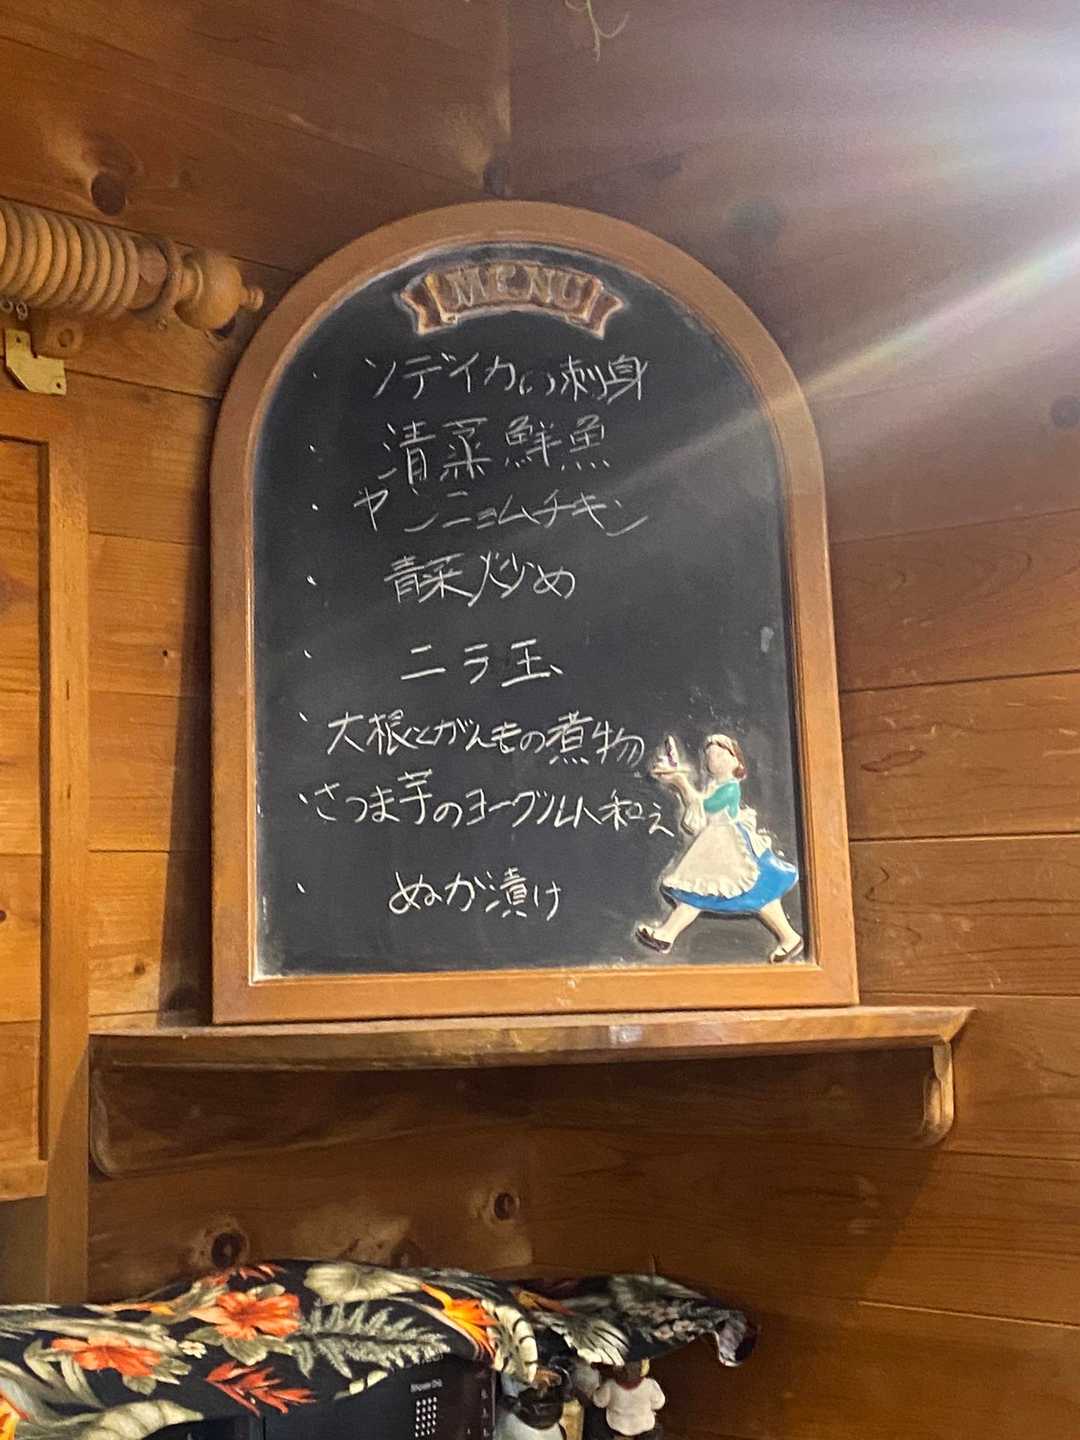 MENU
・ソデイカの刺身
・清菜鮮魚
・ヤンニョムチキン
・青菜炒め
・ニラ玉
・大根とがんもの煮物
・さつま芋のヨーグルト和え
・ぬか漬け